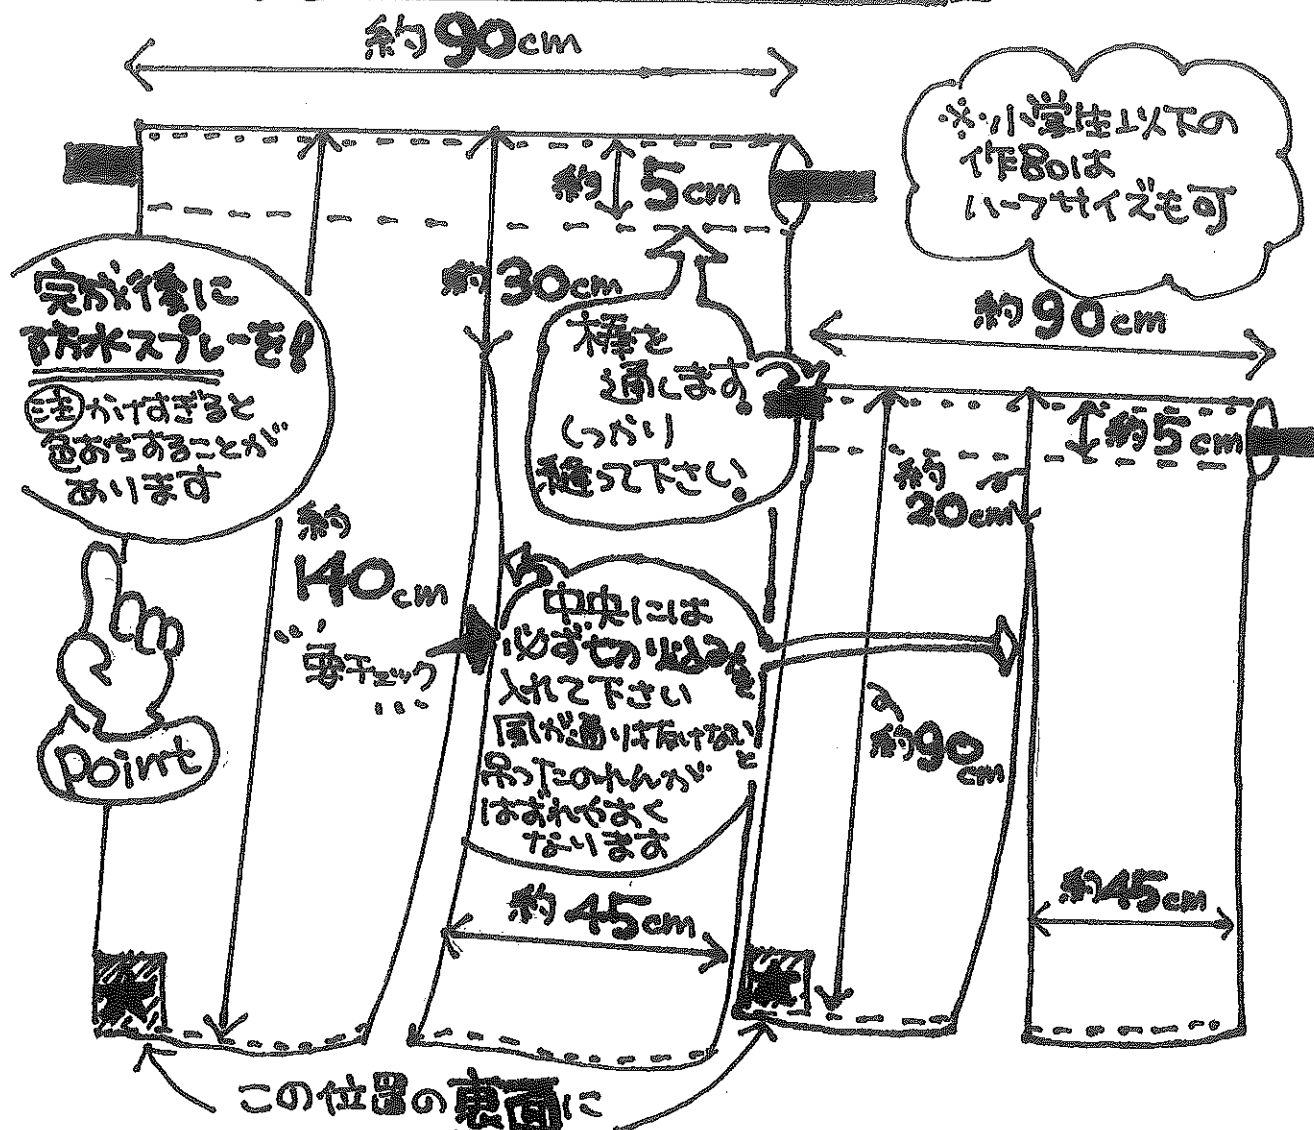 約90cm
※小学生以下の
作品は
ハーフサイズも可
約5cm
約30cm
完成後に
防水スプレーを!
注かけすぎると
色おちすることが
あります
棒を
通します。
しっかり
縫って下さい。
約90cm
約5cm
約
20cm
約
140cm
要チェック
中央には
必ず切り込みを
入れて下さい
風が通り抜けないと
吊ったのれんが
はずれやすく
なります
point
約90
cm
約45cm
約45cm
この位置の裏面に